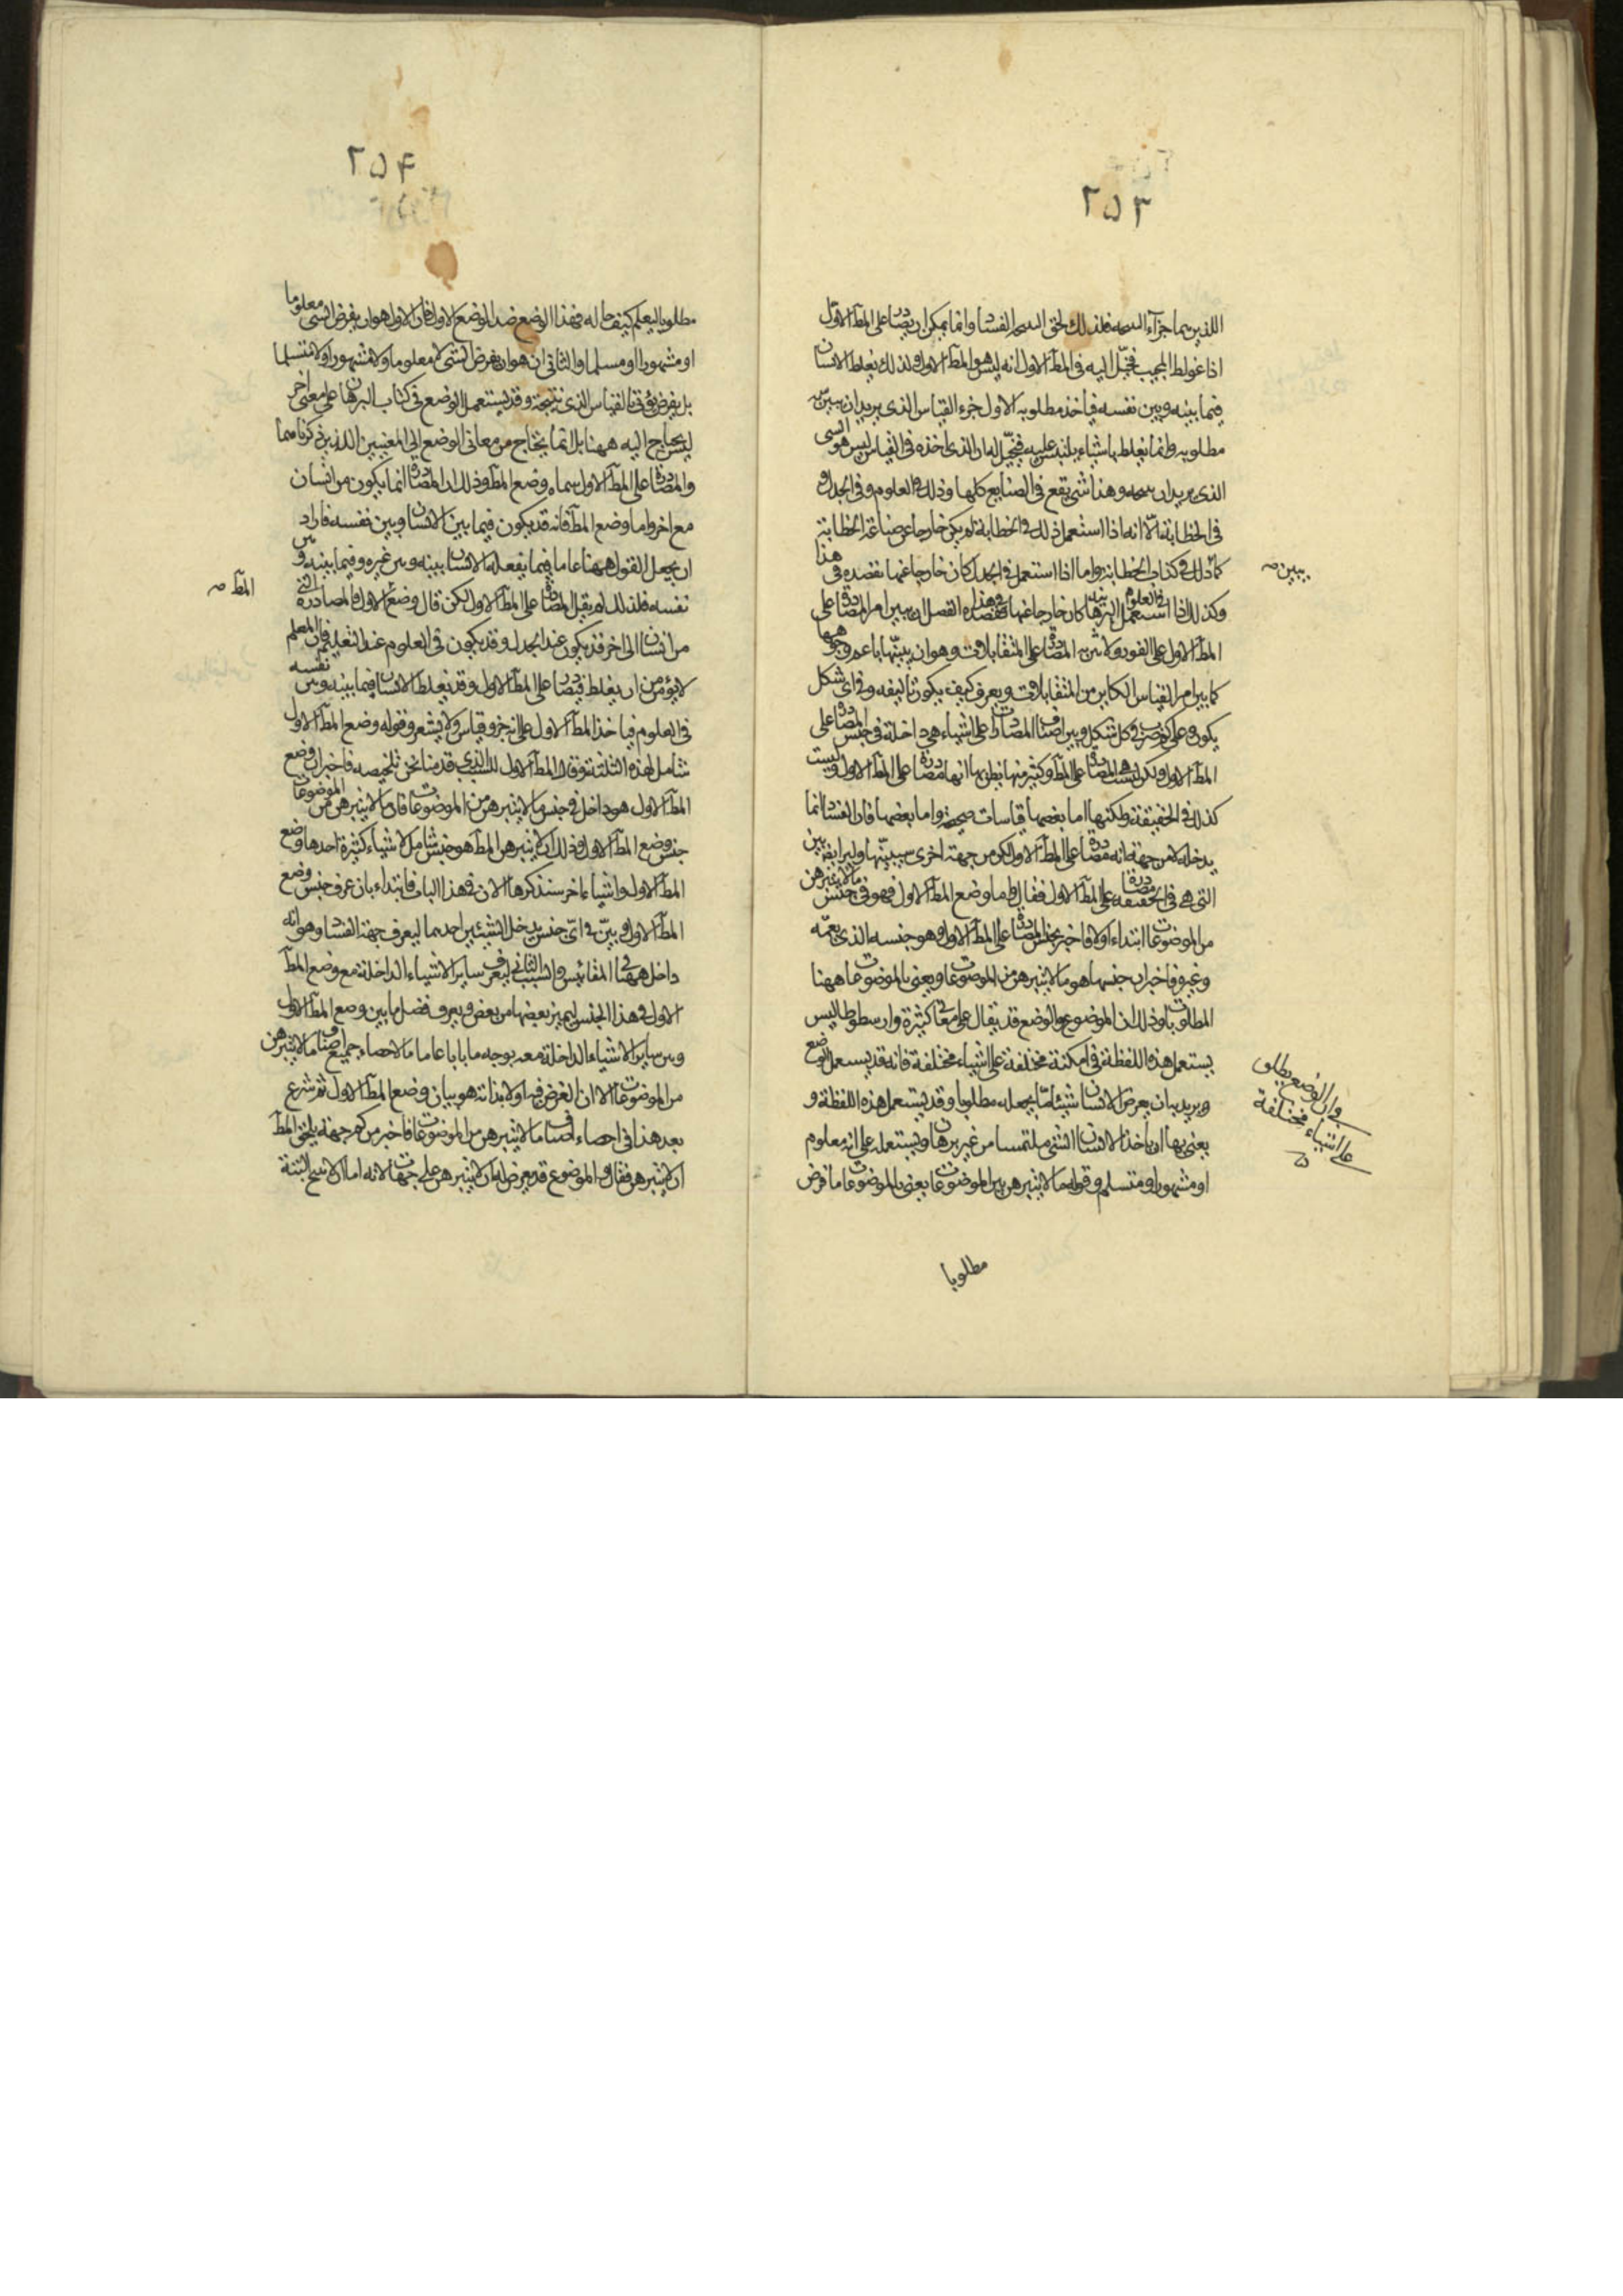 ٢٥٣
اللذين هما جزآء النتيجة فلذلك لحق النتيجة الفساد وانما يمكن ان يصادر على المط الاول
اذا غولط المجيب فخيّل اليه في المط الاول انه ليس هو المط الاول ولذلك يغلط الانسان
فيما بينه وبين نفسه فياخذ مطلوبه الاول جزء القياس الذى يريد ان يبين به
مطلوبه وانما يغلط باشياء يلتبس عليه فيخيّل له ان الذى اخذه في القياس ليس هو الشى
الذى يريد ان يبينه وهذا شى يقع في الصنايع كلها وذلك في العلوم وفي الجدل و
في الخطابة الّا انه اذا استعمل ذلك في الخطابة لم يكن خارجا عن صناعة الخطابة
كما ذلك في كتاب الخطابة واما اذا استعمل في الجدل كان خارجا عنها نقصده في هذا
وكذلك اذا استعمل في العلوم البرهانية كان خارجا عنها فقصده في هذا الفصل ان يبين امر المصادرة على
المط الاول على الفور ولا شرب المصادرة على المتقابلات وهو ان يبينها باعم وجوهها
كما بين امر القياس الكاين من المتقابلات ويعرف كيف يكون تاليفه وفي اى شكل
يكون وعلى كم ضرب في كل شكل وبين اصناف المصادرات على اشياء هي داخلة في جنس المصادرة على
المط الاول ولكن ليست هي المصادرة على المط وكثير منها يظن بها انها مصادرة على المط الاول وليست
كذلك في الحقيقة ولكنها اما بعضها قياسات صحيحة واما بعضها فان الفساد انما
يدخله لا من جهة انه مصادرة على المط الاول لكن من جهة اخرى سيبينها وليرا يضا بين
التى هي في الحقيقة مصادرة على المط الاول فقال واما وضع المط الاول فهو في جنس ما لا يتبرهن
من الموضوعات ابتداء اولا فاخبر بجنس المصادرة على المط الاول وهو جنسه الذى يعمّه
وغيره فاخبر ان جنسها هو ما لا يتبرهن من الموضوعات ويعنى بالموضوعات ههنا
المطلوبات وذلك ان الموضوع والوضع قد يقال على معانى كثيرة وارسطوطاليس
يستعمل هذه اللفظة في امكنة مختلفة على اشياء مختلفة فانه قد يستعمل الوضع
ويريد به ان يعرض الانسان شيئا مّا يجعله مطلوبا وقد يستعمل هذه اللفظة و
يعنى بها ان ياخذ الانسان الشى ملتمسا من غير برهان ويستعمله على انه معلوم
او مشهور او متسلم وقوله ما لا يتبرهن بين الموضوعات يعنى بالموضوعات ما فرض
مطلوبا
يبين صح
في ان الوضع يطلق
على اشياء مختلفة
٢٥٤
مطلوبا ليعلم كيف حاله فهذا الوضع ضد الوضع الاول فان الاول هو ان يفرض الشى معلوما
او مشهورا او مسلما والثانى ان هو ان يفرض الشى لا معلوما ولا مشهورا ولا متسلما
بل يفرض يؤتى بالقياس الذى ينتجه وقد يستعمل الوضع في كتاب البرهان على معنى اخر
ليس يحتاج اليه ههنا بل انما يحتاج من معانى الوضع الى المعنيين اللذين ذكرناهما
والمصادرة على المط الاول سماه وضع المط وذلك ان المصادرة انما يكون من انسان
مع اخر واما وضع المط فانه قد يكون فيما بين الانسان وبين نفسه فاراد
ان يجعل القول ههنا عاما فيما يفعله الانسان بينه وبين غيره وفيما بينه وبين
نفسه فلذلك لم يقل المصادرة على المط الاول لكن قال وضع الاول فالمصادرة التى
من انسان الى اخر قد يكون عند الجدل وقد يكون في العلوم عند التعليم فان المعلم
لا يؤمن من ان يغلط فيصادر على المط الاول وقد يغلط الانسان فيما بينه وبين نفسه
في العلوم فياخذ المط الاول على انه جزو قياس ولا يشعر وقوله وضع المط الاول
شامل لهذه الثلثة وقال المط الاول للسبب الذى قدمنا نحن تلخيصه فاخبر ان وضع
المط الاول هو داخل في جنس ما لا يتبرهن من الموضوعات فان ما لا يتبرهن من الموضوعات
جنس وضع المط الاول وذلك ان لا يتبرهن المط هو جنس شامل لاشياء كثيرة احدها وضع
المط الاول واشياء اخر سنذكرها الان في هذا الباب فابتداء بان عرف جنس وضع
المط الاول وبيّن في اىّ جنس يدخل لشيئين احدهما ليعرف جهة الفساد وهو انه
داخل ههنا في المقائيس والسبب الثانى ليعرف ساير الاشياء الداخلة مع وضع المط
الاول في هذا الجنس ليميز بعضها من بعض ويعرف فصل ما بين وضع المط الاول
وبين ساير الاشياء الداخلة معه بوجه ما بابا عاما ما لاحصاء جميع اصناف ما لا يتبرهن
من الموضوعات الا ان الغرض فيه اولا بذاته هو بيان وضع المط الاول ثم شرع
بعد هذا في احصاء اصناف ما لا يتبرهن من الموضوعات فاخبر من كم جهة يلحق المط
ان لا يتبرهن فقال والموضوع قد يعرض له ان لا يتبرهن على جهات لانه اما ان لا ينتج البتة
المط صح